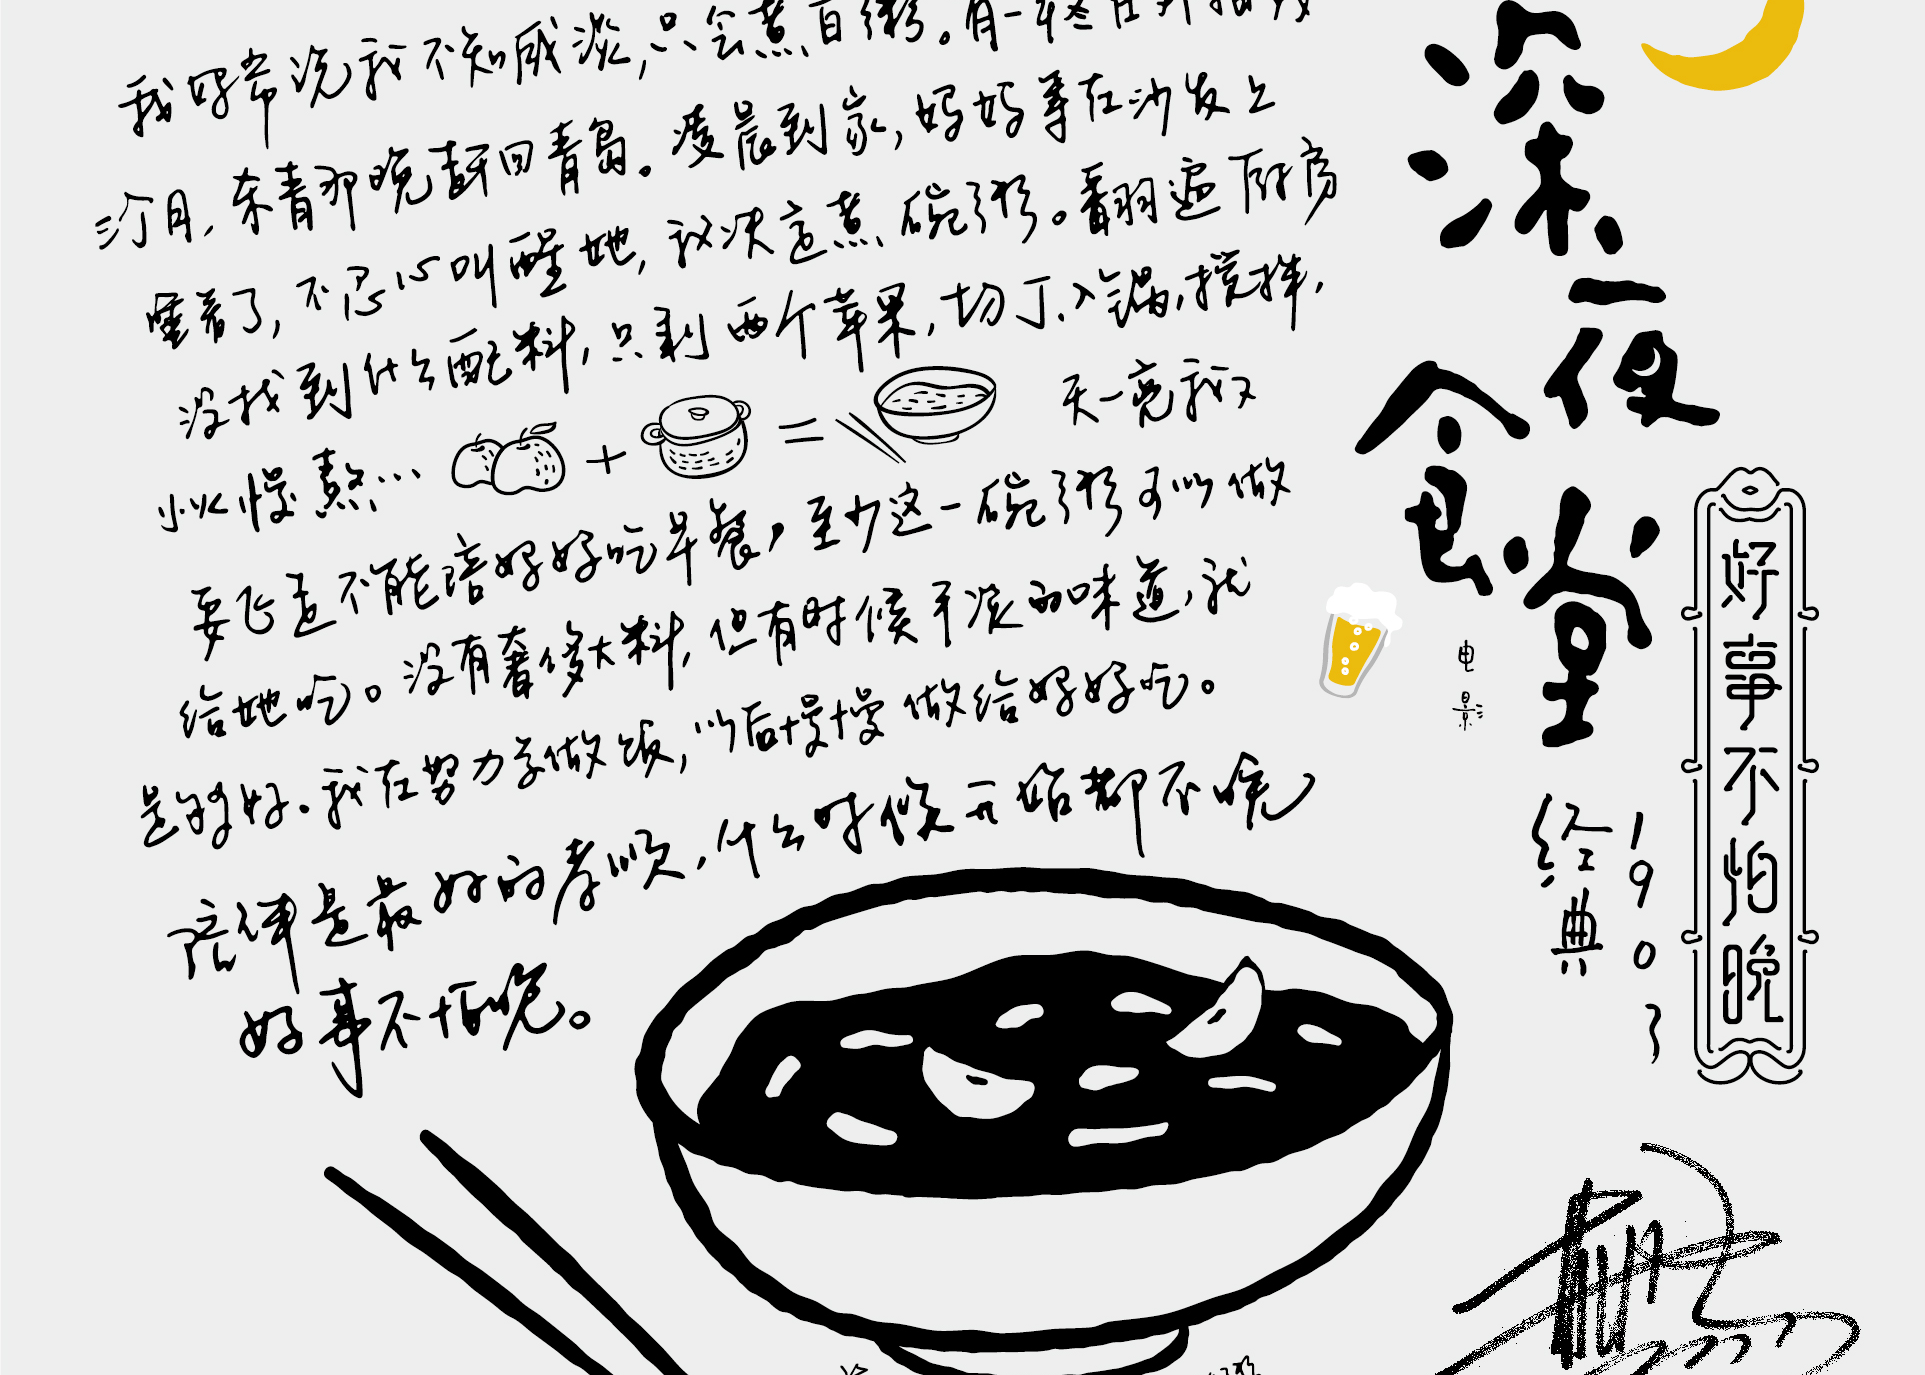 我妈常说我不知咸淡，只会煮白粥。有一年冬在外拍戏
三个月，杀青那晚赶回青岛。凌晨到家，妈妈等在沙发上
睡着了，不忍心叫醒她，我决定煮碗粥。翻遍厨房
没找到什么配料，只剩两个苹果，切丁、入锅，搅拌，
小火慢熬…
天一亮我又
要飞走不能陪妈妈吃早餐，至少这一碗粥可以做
给她吃。没有奢侈大料，但有时候平淡的味道，就
是够好。我在努力学做饭，以后慢慢做给妈妈吃。
陪伴是最好的孝顺，什么时候开始都不晚
好事不怕晚。
深夜
食堂
电影
经典
1903
好事不怕晚